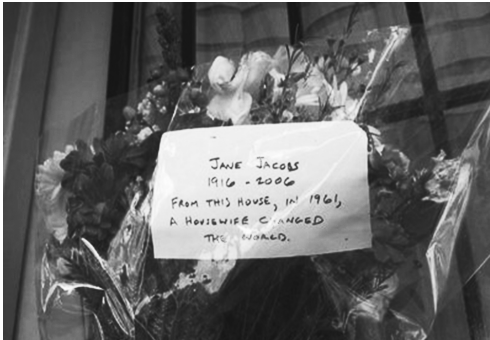 JANE JACOBS
1916 - 2006
FROM THIS HOUSE, IN 1961,
A HOUSEWIFE CHANGED
THE WORLD.